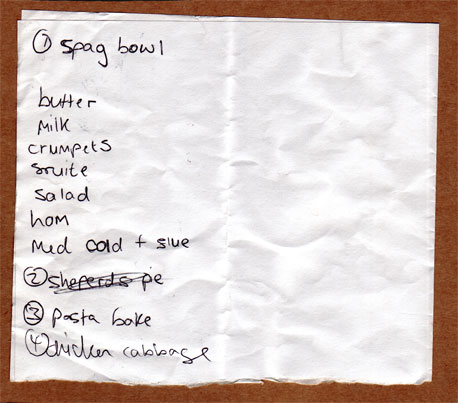 ① spag bowl
butter
milk
crumpets
sruite
salad
hom
Med cold + slue
② sheperds pie
③ pasta bake
④ chicken cabbage